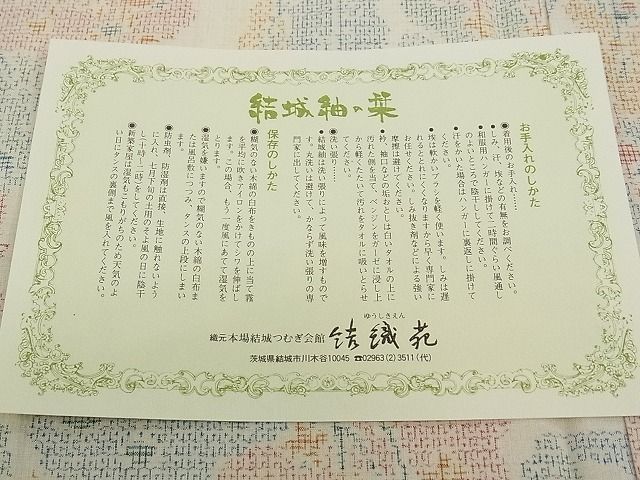 結城紬の栞
お手入れのしかた
●着用後のお手入れ……
●しみ、汗、埃などの有無をお調べください。
●和服用ハンガーに掛けて一時間ぐらい風通し
のよいところで陰干してください。
●汗をかいた場合はハンガーに裏返しに掛けて
ください。
●埃は軟かいブラシを軽く使います。しみは遅
れるととれにくくなりますから早く専門家に
お任せください。しみ抜き剤などによる強い
摩擦は避けてください。
●衿、袖口などの垢おとしは白いタオルの上に
汚れた側を当て、ベンジンをガーゼに浸し上
から軽くたたいて汚れをタオルに吸いとらせ
てください。
●洗い張り……
●結城紬は洗い張りによって風味を増すもので
す。丸洗いは避けて、かならず洗い張りの専
門家に出してください。
保存のしかた
●糊気のない木綿の白布をきものの上に当て霧
を平均に吹きアイロンをかけてシワを伸ばし
ます。この場合、もう一度風にあてて湿気を
とります。
●湿気を嫌いますので糊気のない木綿の白布ま
たは風呂敷につつみ、タンスの上段にしまい
ます。
●防虫剤、防湿剤は直接、生地に触れないよう
に入れ、七月下旬の土用のそよ風の日に陰干
し(十時～二時)をしてください。
●新築家屋は湿気がこもりがちのため天気のよ
い日にタンスの裏側まで風を入れてください。
ゆうしきえん
織元本場結城つむぎ会館 結織苑
茨城県結城市川木谷10045 ☎02963(2)3511(代)